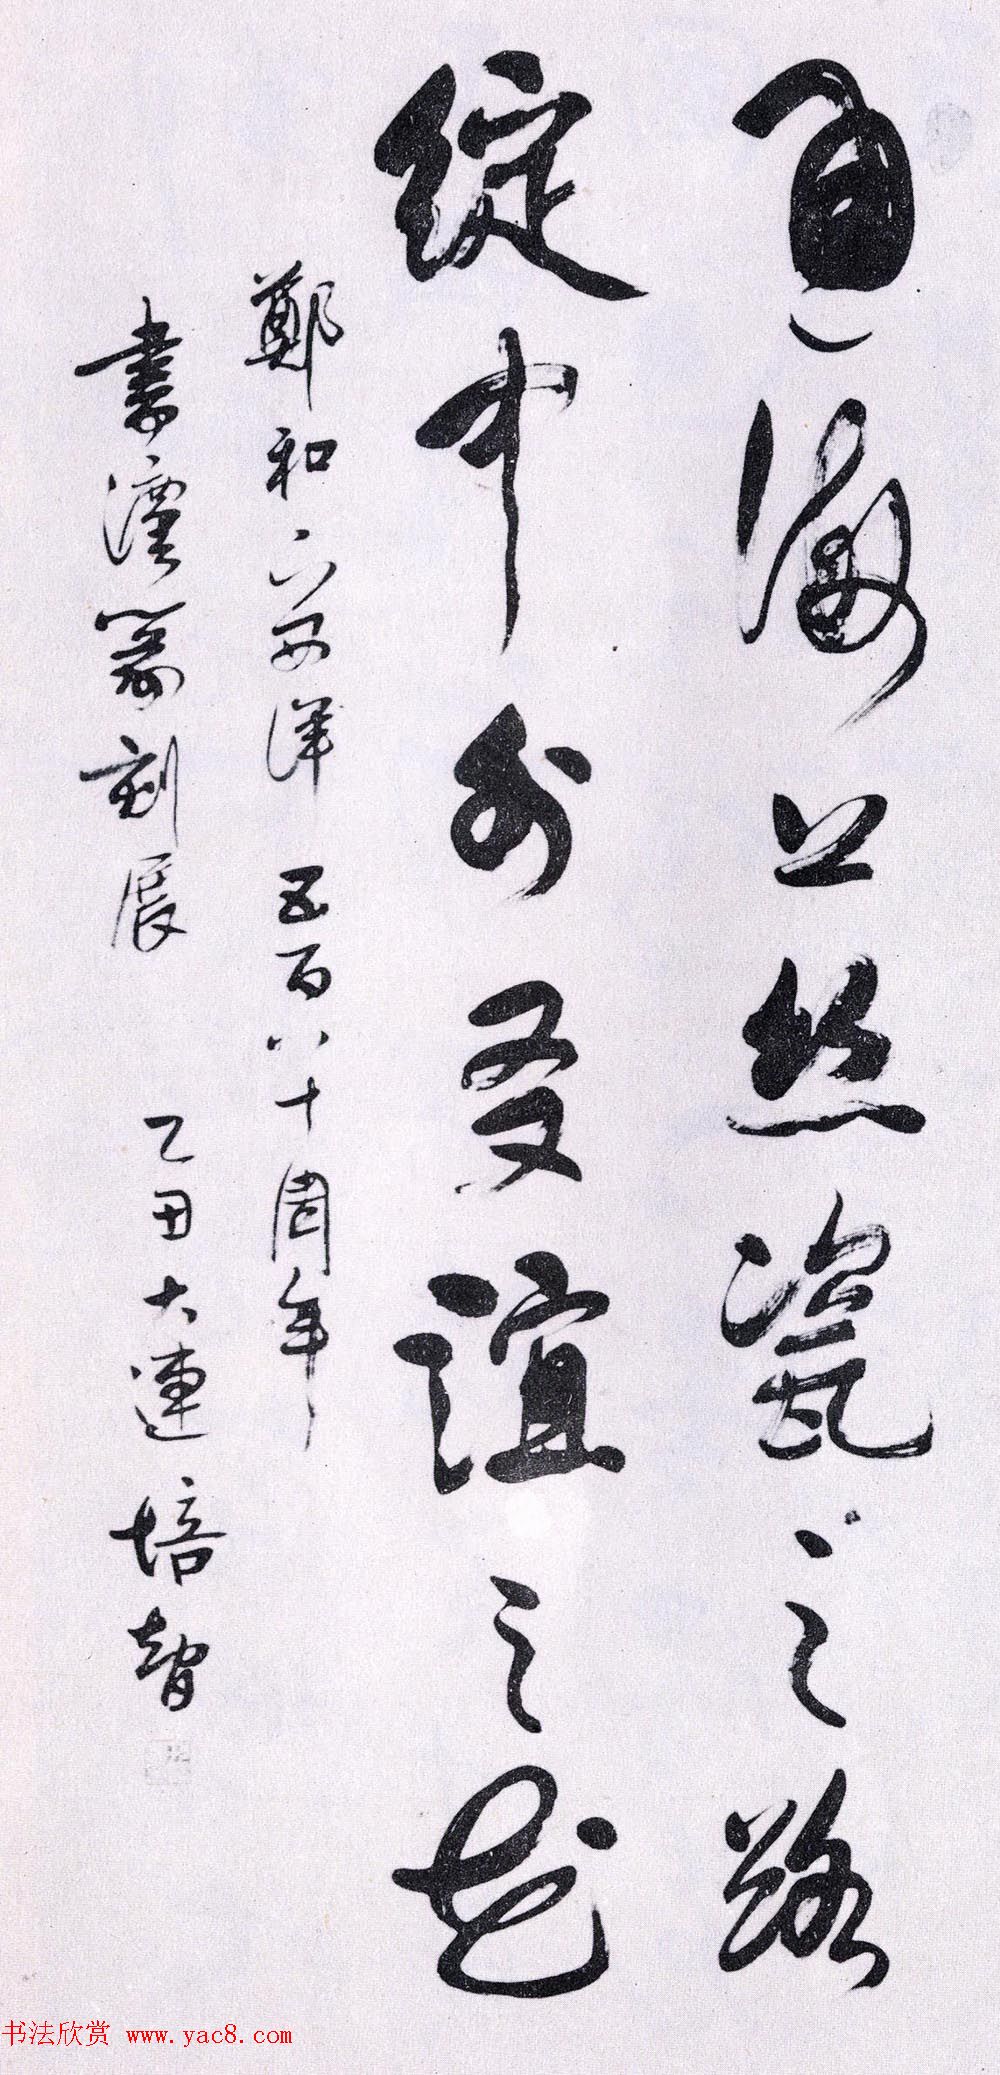 通海上丝瓷之路
绽中外友谊之花
郑和下西洋五百八十周年
书法篆刻展 乙丑大连培智
书法欣赏 www.yac8.com